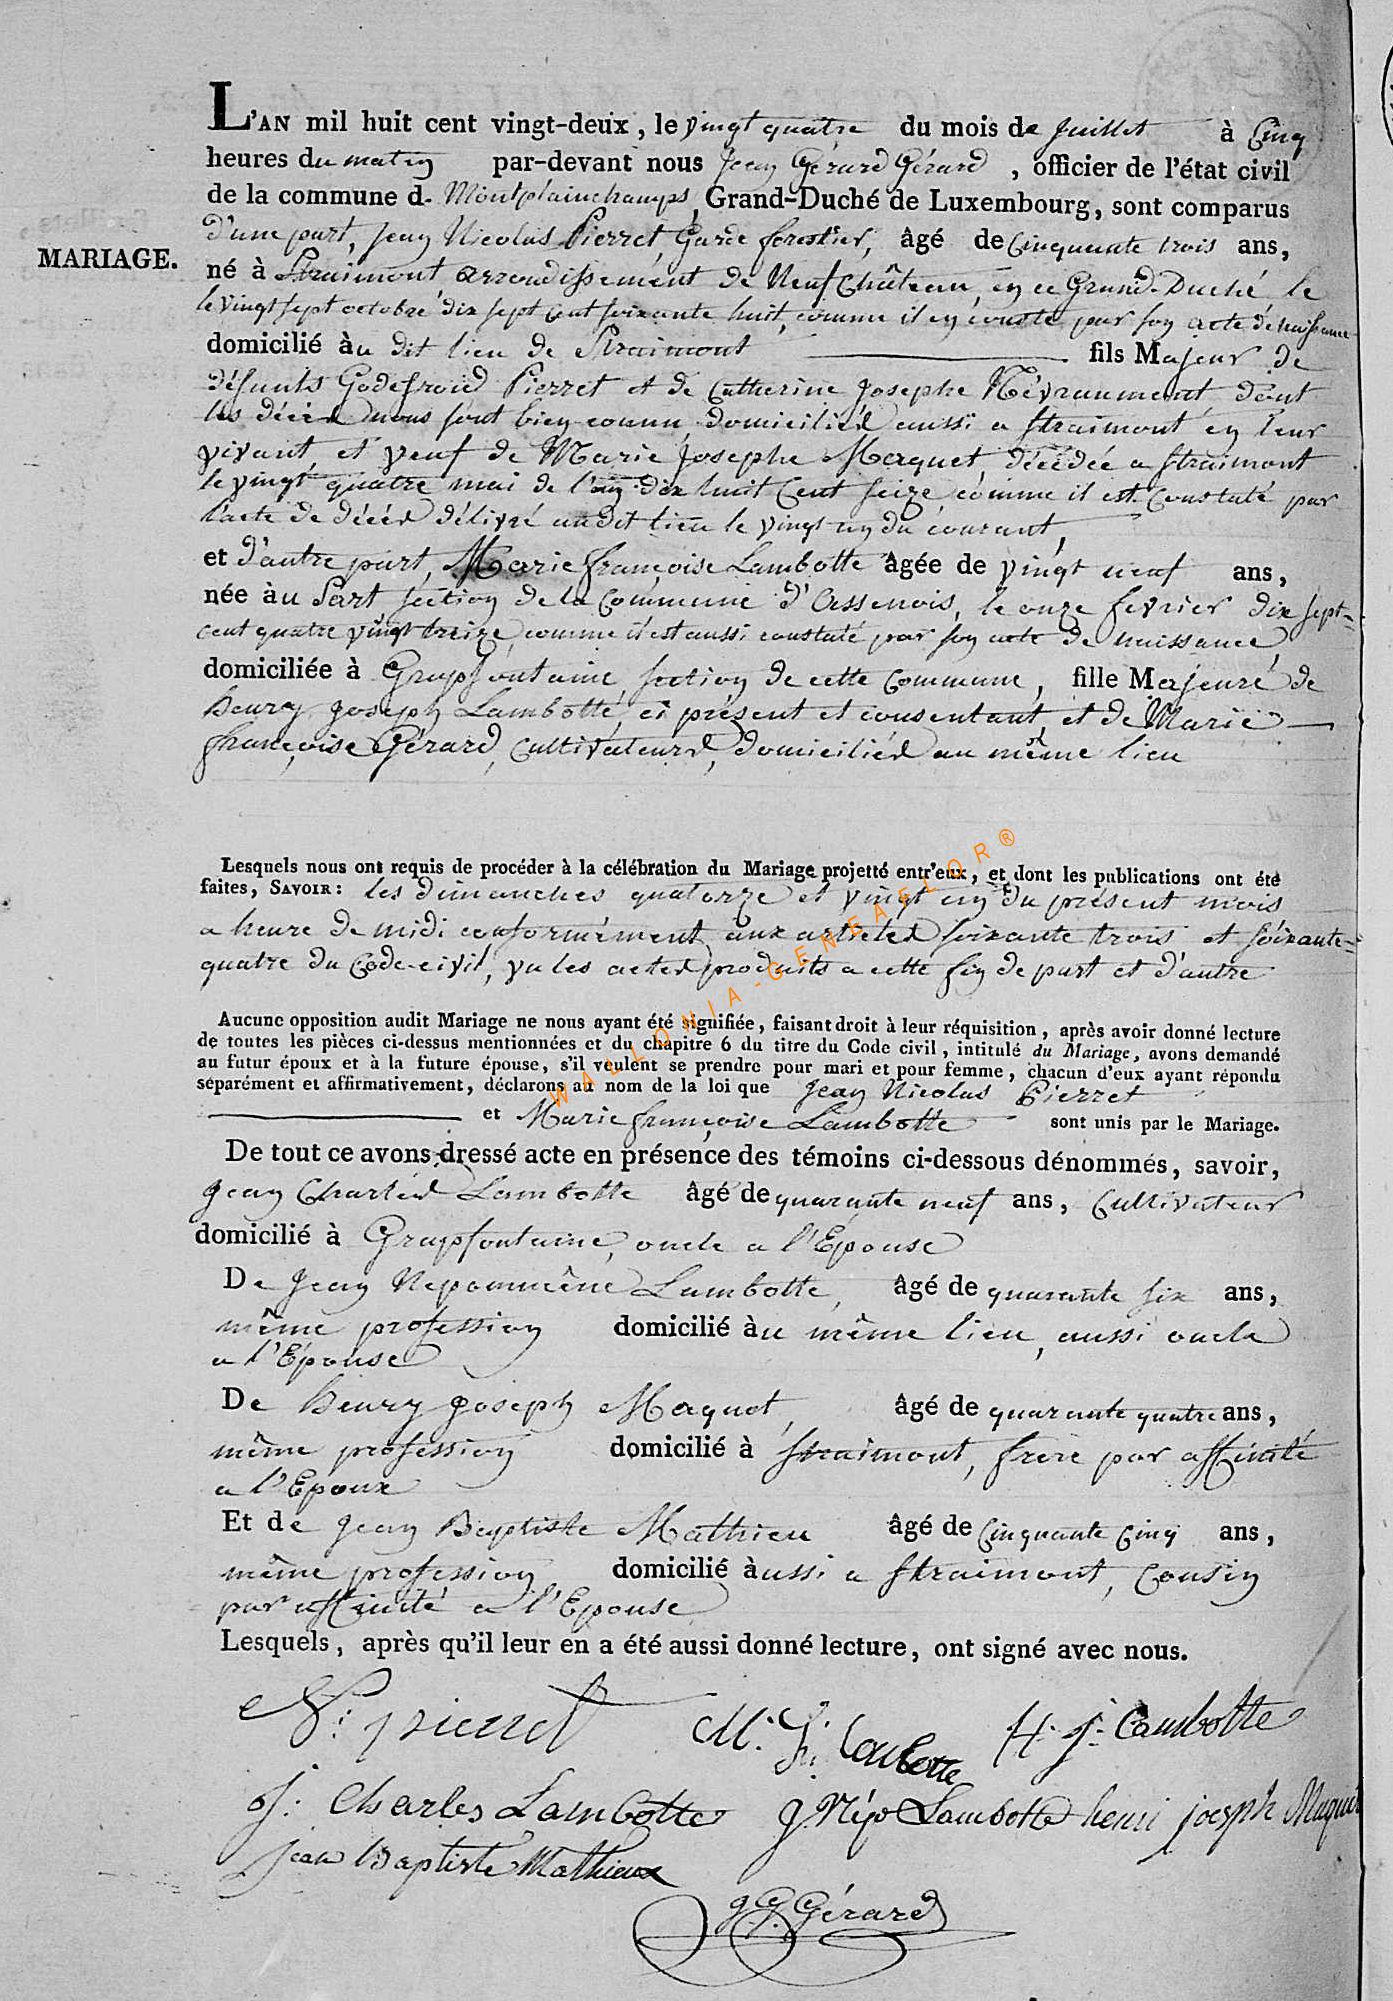 L'AN mil huit cent vingt-deux, le vingt quatre du mois de Juillet à Cinq
heures du matin par-devant nous Jean Gérard Gérard, officier de l'état civil
de la commune d. Montplainchamps, Grand-Duché de Luxembourg, sont comparus
d'une part, Jean Nicolas Pierret, Garde forestier, âgé de cinquante trois ans,
MARIAGE.
né à Straimont, arrondissement de Neufchâteau, en ce Grand-Duché, le
le vingt sept octobre dix sept cent soixante huit, comme il en conste par son acte de naissance
domicilié au dit lieu de Straimont fils Majeur de
défunts Godefroid Pierret et de Catherine Josephe Névraumont, dont
les décès nous sont bien connu domiciliés aussi a Straimont en leur
vivant et veuf de Marie Josephe Maquet, décédée a Straimont
le vingt quatre mai de l'an dix huit cent seize comme il est constaté par
l'acte de décès délivré audit lieu le vingt un du courant,
et d'autre part, Marie françoise Lambotte âgée de vingt neuf ans,
née au Sart, section de la Commune d'Assenois, le onze fevrier dix sept-
cent quatre vingt treize, comme il est aussi constaté par son acte de naissance
domiciliée à Grapfontaine, section de cette Commune, fille Majeure de
henry Joseph Lambotte, ci présent et consentant et de Marie
françoise Gérard, cultivateurs, domiciliés au même lieu
Lesquels nous ont requis de procéder à la célébration du Mariage projetté entr'eux, et dont les publications ont été
faites, SAVOIR: les dimanches quatorze et vingt un du présent mois
a heure de midi conformément aux articles soixante trois et soixante-
quatre du Code-civil, vu les actes produits a cette fin de part et d'autre
Aucune opposition audit Mariage ne nous ayant été signifiée, faisant droit à leur réquisition, après avoir donné lecture
de toutes les pièces ci-dessus mentionnées et du chapitre 6 du titre du Code civil, intitulé du Mariage, avons demandé
au futur époux et à la future épouse, s'il veulent se prendre pour mari et pour femme, chacun d'eux ayant répondu
séparément et affirmativement, déclarons au nom de la loi que Jean Nicolas Pierret
et Marie françoise Lambotte sont unis par le Mariage.
De tout ce avons dressé acte en présence des témoins ci-dessous dénommés, savoir,
Jean Charles Lambotte âgé de quarante neuf ans, Cultivateur
domicilié à Grapfontaine, oncle a l'Epouse
De Jean Nepommcêne Lambotte, âgé de quarante six ans,
même profession domicilié au même lieu, aussi oncle
a l'Epouse
De henry Joseph Maquet, âgé de quarante quatre ans,
même profession domicilié à Straimont, frère par affinité
a l'Epoux
Et de Jean Baptiste Mathieu âgé de Cinquante Cinq ans,
même profession domicilié aussi a Straimont, Cousin
par affinité a l'Epouse
Lesquels, après qu'il leur en a été aussi donné lecture, ont signé avec nous.
N: pierret M. f: Lambotte H. j: Lambotte
J: Charles Lambotte J Nép Lambotte henri joesph Maquet
Jean Baptiste Mathieux
J G. Gérard
WALLONIA-GENEAFLOR®